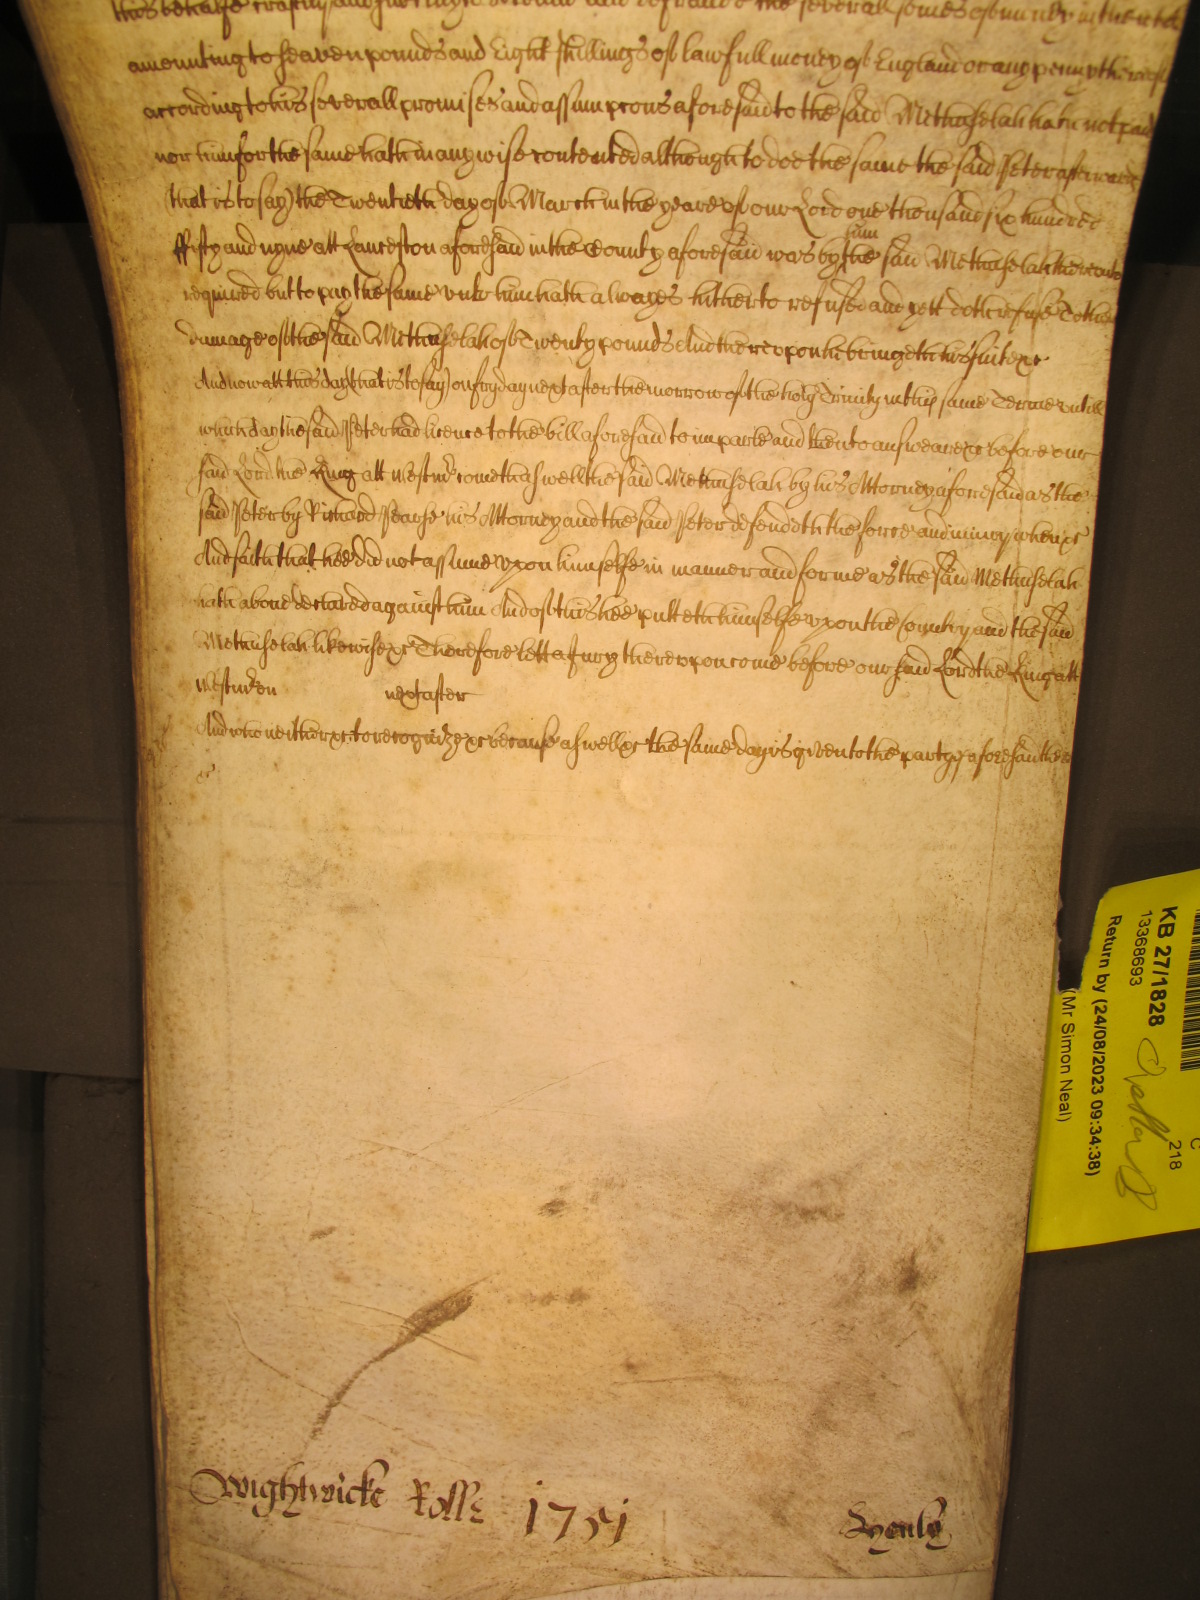 this behalfe craftily and to deceive and defraude the severall somes of money in the
amounting to seaven pounds and Eight shillings of lawfull money of England or any penny thereof
according to his severall promises and assumpcons aforesaid to the said Methuselah hath not paid
nor him for the same hath in any wise contented although to doe the same the said Peter afterwards
that is to say) the Twentieth day of March in the yeare of our Lord one thousand six hundred
ffifty and nyne att Lanceston aforesaid in the County aforesaid was by the said Methuselah thereunto
required but to pay the same unto him hath alwayes hitherto refused and yett doth refuse To the
damage of the said Methuselah of Twenty pounds And thereupon he bringeth his suite &c
And now att this day (that is to say) on fryday next after the morrow of the holy Trinity in this same Terme untill
which day the said Peter had licence to the bill aforesaid to imparle and then to answeare &c before our
said Lord the King att Westmr cometh aswell the said Methuselah by his Attorney aforesaid as the
said Peter by Richard his Attorney and the said Peter defendeth the force and iniury when &c
And saith that hee did not assume upon himselfe in manner and forme as the said Methuselah
hath above declared against him And of this hee putteth himselfe upon the Country and the said
Methuselah likewise &c Therefore lett a Jury thereupon come before our said Lord the King att
Westmr on next after
And who neither &c to recognize &c because aswell &c the same day is given to the partyes aforesaid there
&c
Wightwicke Rolls 1751
KB 27/1828
13368693
Return by (24/08/2023 09:34:38)
(Mr Simon Neal)
C
218